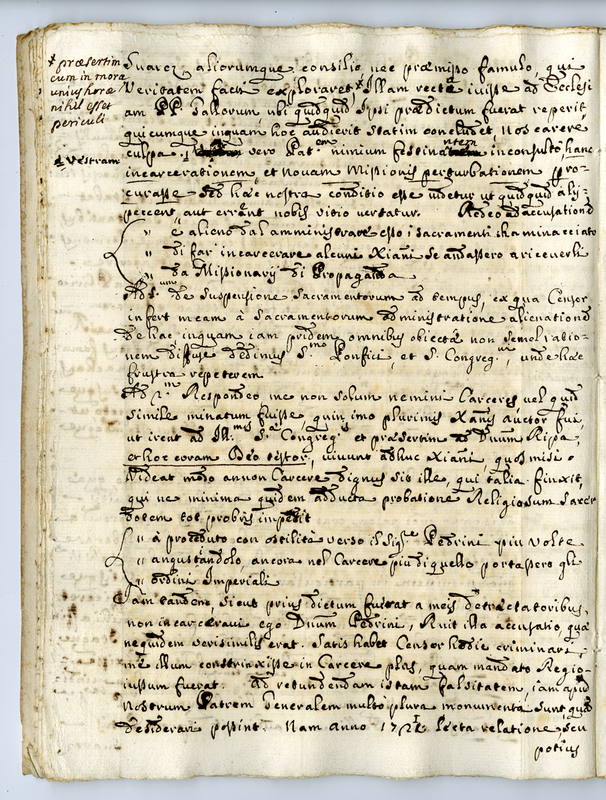 + præsertim
cum in mora
unius horæ
nihil esset
periculi
Suarez aliorumque consilio nec præmisso famulo, qui
Veritatem facti exploraret + Illam recta ivisse ad Ecclesi
am PP. Gallorum ubi quidquid Ipsi prædictum fuerat reperit
quicumque inquam hoc audierit statim concludet Nos carere
culpa, vero Pat.em nimium festinantem inconsulto, hanc
Vestram
incarcerationem, et novam Missionis perturbationem pro-
curasse - Sed hæc nostra conditio esse videtur ut quidquid alij
peccent, aut errent nobis vitio vertatur. Redeo ad accusationes
" è alieno dal amministrare esso i sacramenti, ha minacciato
" di far incarcerare alcuni Xiani se andassero a riceverli
" da Missionarij di Propaganda
Ad 1.um de suspensione Sacramentorum ad tempus, ex qua Censor
infert meam à Sacramentorum administratione alienationem
de hac inquam iam pridem omnibus obiecta non semel ratio-
nem diffuse dedimus S.mo Ponfici, et S. Congreg.ni, unde hæc
frustra repeterem
Ad 2.m Respondeo me non solum nemini Carceres vel quid
simile minatum fuisse, quin imo plurimis Xanis auctor fui,
ut irent ad Ill.mos S. Congreg.is et præsertim ad Dnum Ripa,
et hoc coram Deo testor, vivunt adhuc Xiani, quos misi.
Videat modo an non Carcere dignus sit ille, qui talia finxit,
qui ne minima quidem adducta probatione Religiosum Sacer
dotem tot probris impetit
" à proceduto con ostilità verso il Sig.re Pedrini più volte
" angustiandolo, ancora nel Carcere più di quello portassero gli
" ordini Imperiali
Iam tandem, sicut prius dictum fuerat a meis detractatoribus,
non incarceravi ego Dnum Pedrini, Ruit illa accusatio, quæ
nequidem verisimilis erat. Satis habet Censor hodie criminari,
me illum constrinxisse in Carcere plus, quam mandato Regio
iussum fuerat. Ad retundendam istam falsitatem, iam apud
nostrum Patrem Generalem multo plura monumenta sunt, quam
desiderari possint. Nam Anno lecta relatione, seu
potius